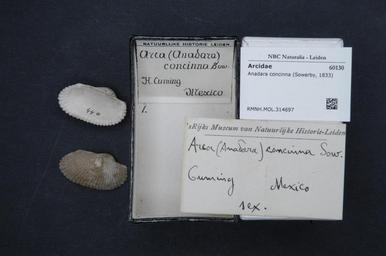 NATUURLIJKE HISTORIE LEIDEN
Arca (Anadara)
concinna Sow.
H. Cuming
Mexico
1.
NBC Naturalis - Leiden
Arcidae 60130
Anadara concinna (Sowerby, 1833)
RMNH.MOL.314697
's Rijks Museum van Natuurlijke Historie-Leiden
Arca (Anadara) concinna Sow.
Cuming Mexico
1 ex.